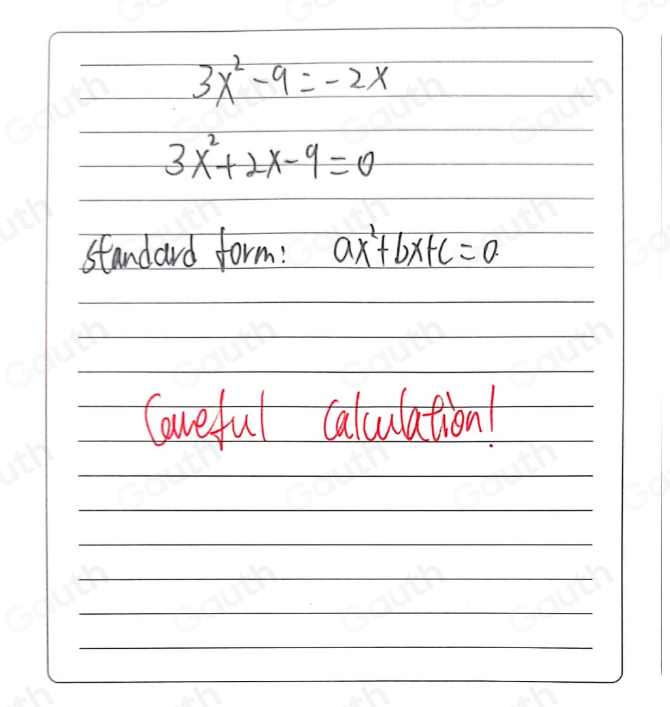 3x²-9=-2x
3x²+2x-9=0
standard form: ax²+bx+c=0
Careful calculation!
Gauth